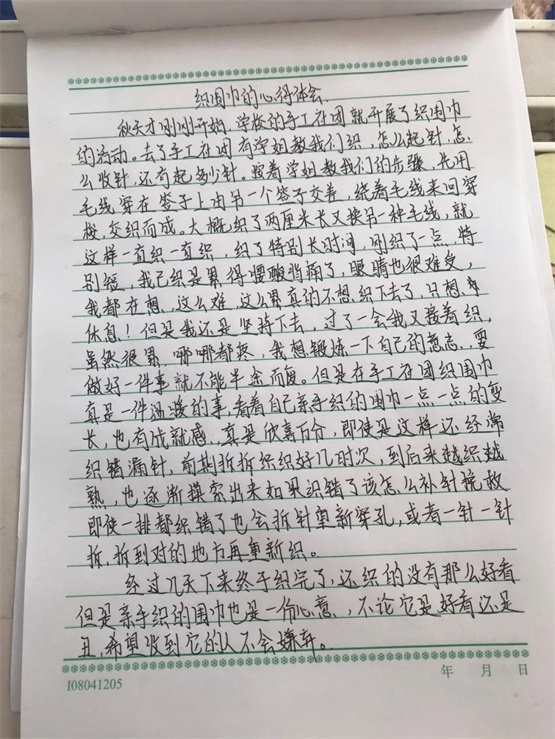 织围巾的心得体会
秋天才刚刚开始,学校的手工社团就开展了织围巾
的活动。去了手工社团有学姐教我们织,怎么起针,怎
么收针,还有起多少针。按着学姐教我们的步骤,先用
毛线穿在签子上由另一个签子交差,绕着毛线来回穿
梭,交织而成。大概织了两厘米长又换另一种毛线,就
这样一直织一直织,织了特别长时间,刚织了一点,特
别短,我已织是累得腰酸背痛了,眼睛也很难受,
我都在想,这么难,这么累真的不想织下去了,只想
休息!但是我还是坚持下去,过了一会我又接着织,
虽然很累,哪哪都疼,我想锻炼一下自己的意志,要
做好一件事就不能半途而复。但是在手工社团织围巾
真是一件温漫的事,看着自己亲手织的围巾一点一点的变
长,也有成就感,真是欣喜万分,即使是这样还经常
织错漏针,前期拆拆织织好几时次,到后来越织越
熟,也逐渐摸索出来如果织错了该怎么补针挽救
即使一排都织错了也会拆针重新穿孔,或者一针一针
拆,拆到对的地方再重新织。
经过几天下来终于织完了,还织的没有那么好看
但是亲手织的围巾也是一份心意,不论它是好看还是
丑,希望收到它的人不会嫌弃。
I08041205 年 月 日